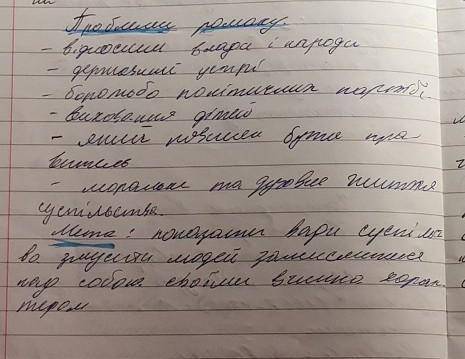 Проблеми роману.
- відносини влади і народа
- державний устрі
- боротьба політичних партій
- виховання дітей
- який повинен бути пра
витель
- моральне та духовне життя
суспільства.
Мета: показати вади суспіль
ва змусити людей замислитися
над собою своїми вчинка харак
тером